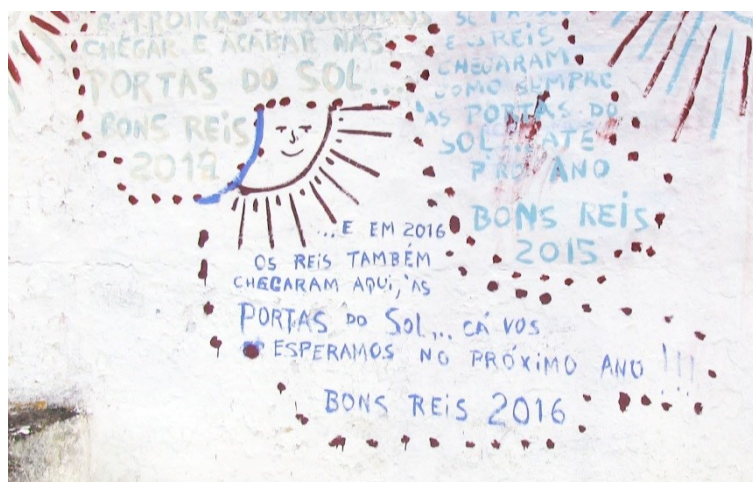 E TROIKAS CONSEGUIMOS
CHEGAR E ACABAR NAS
PORTAS DO SOL...
BONS REIS
2012
E OS REIS
CHEGARAM
COMO SEMPRE
'AS PORTAS DO
SOL ATÉ
P'RÓ ANO
BONS REIS
2015
...E EM 2016
OS REIS TAMBÉM
CHEGARAM AQUI, 'AS
PORTAS DO SOL... CÁ VOS
ESPERAMOS NO PRÓXIMO ANO !!!
BONS REIS 2016